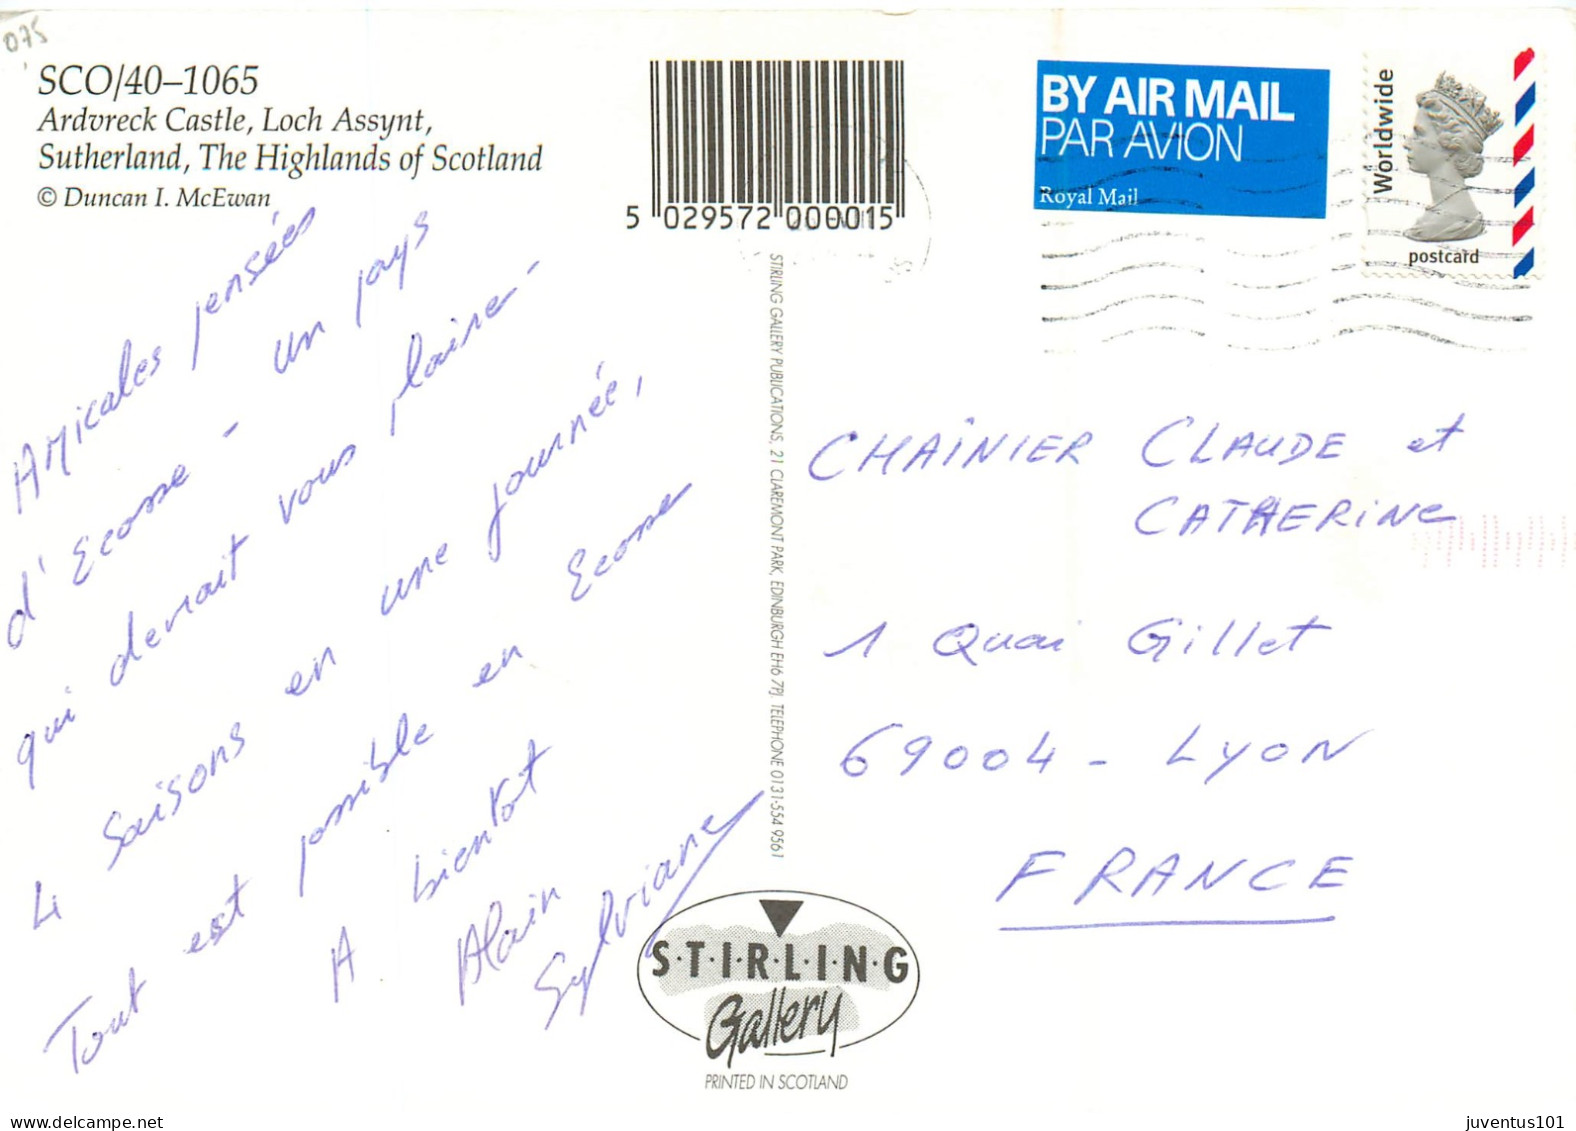 075
SCO/40–1065
Ardvreck Castle, Loch Assynt,
Sutherland, The Highlands of Scotland
© Duncan I. McEwan
5 029572 000015
BY AIR MAIL
PAR AVION
Royal Mail
Worldwide
postcard
Amicales pensées
d'Ecosse - un pays
qui devrait vous plaire -
4 saisons en une journée,
Tout est possible en Ecosse
A bientôt
Alain
Sylviane
STIRLING GALLERY PUBLICATIONS, 21 CLAREMONT PARK, EDINBURGH EH6 7PJ. TELEPHONE 0131-554 9561
CHAÎNIER CLAUDE et
CATHERINE
1 Quai Gillet
69004 - LYON
FRANCE
S·T·I·R·L·I·N·G
Gallery
PRINTED IN SCOTLAND
juventus101